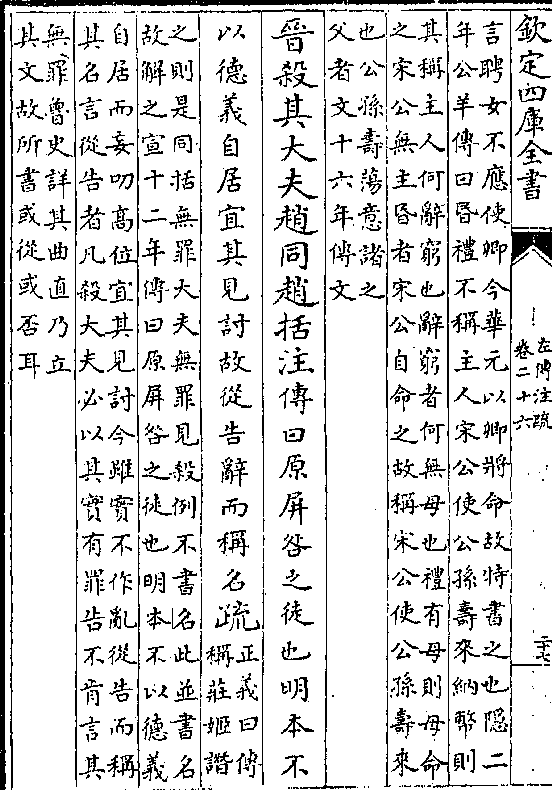 欽定四庫全書
左傳注疏
卷二十六
二十七
言聘女不應使卿今華元以卿將命故特書之也隱二
年公羊傳曰昏禮不稱主人宋公使公孫壽來納幣則
其稱主人何辭窮也辭窮者何無母也禮有母則母命
之宋公無主昏者宋公自命之故稱宋公使公孫壽來
也公孫壽蕩意諸之
父者文十六年傳文
晉殺其大夫趙同趙括注傳曰原屏咎之徒也明本不
以德義自居宜其見討故從告辭而稱名疏
正義曰傳
稱莊姬譖
之則是同括無罪大夫無罪見殺例不書名此並書名
故解之宣十二年傳曰原屏咎之徒也明本不以德義
自居而妄叨高位宜其見討今雖實不作亂從告而稱
其名言從告者凡殺大夫必以其實有罪告不肯言其
無罪魯史詳其曲直乃立
其文故所書或從或否耳